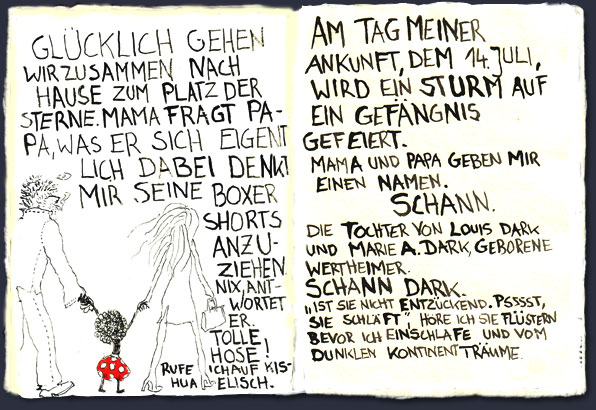 GLÜCKLICH GEHEN
WIR ZUSAMMEN NACH
HAUSE ZUM PLATZ DER
STERNE. MAMA FRAGT PA-
PA, WAS ER SICH EIGENT
LICH DABEI DENKT
MIR SEINE BOXER
SHORTS
ANZU-
ZIEHEN
NIX, ANT-
WORTET
ER.
TOLLE
HOSE!
RUFE ICH AUF KIS-
HUA ELISCH.
AM TAG MEINER
ANKUNFT, DEM 14. JULI,
WIRD EIN STURM AUF
EIN GEFÄNGNIS
GEFEIERT.
MAMA UND PAPA GEBEN MIR
EINEN NAMEN.
SCHANN.
DIE TOCHTER VON LOUIS DARK
UND MARIE A. DARK, GEBORENE
WERTHEIMER.
SCHANN DARK.
„IST SIE NICHT ENTZÜCKEND. PSSSST,
SIE SCHLÄFT", HÖRE ICH SIE FLÜSTERN
BEVOR ICH EINSCHLAFE UND VOM
DUNKLEN KONTINENT TRÄUME.